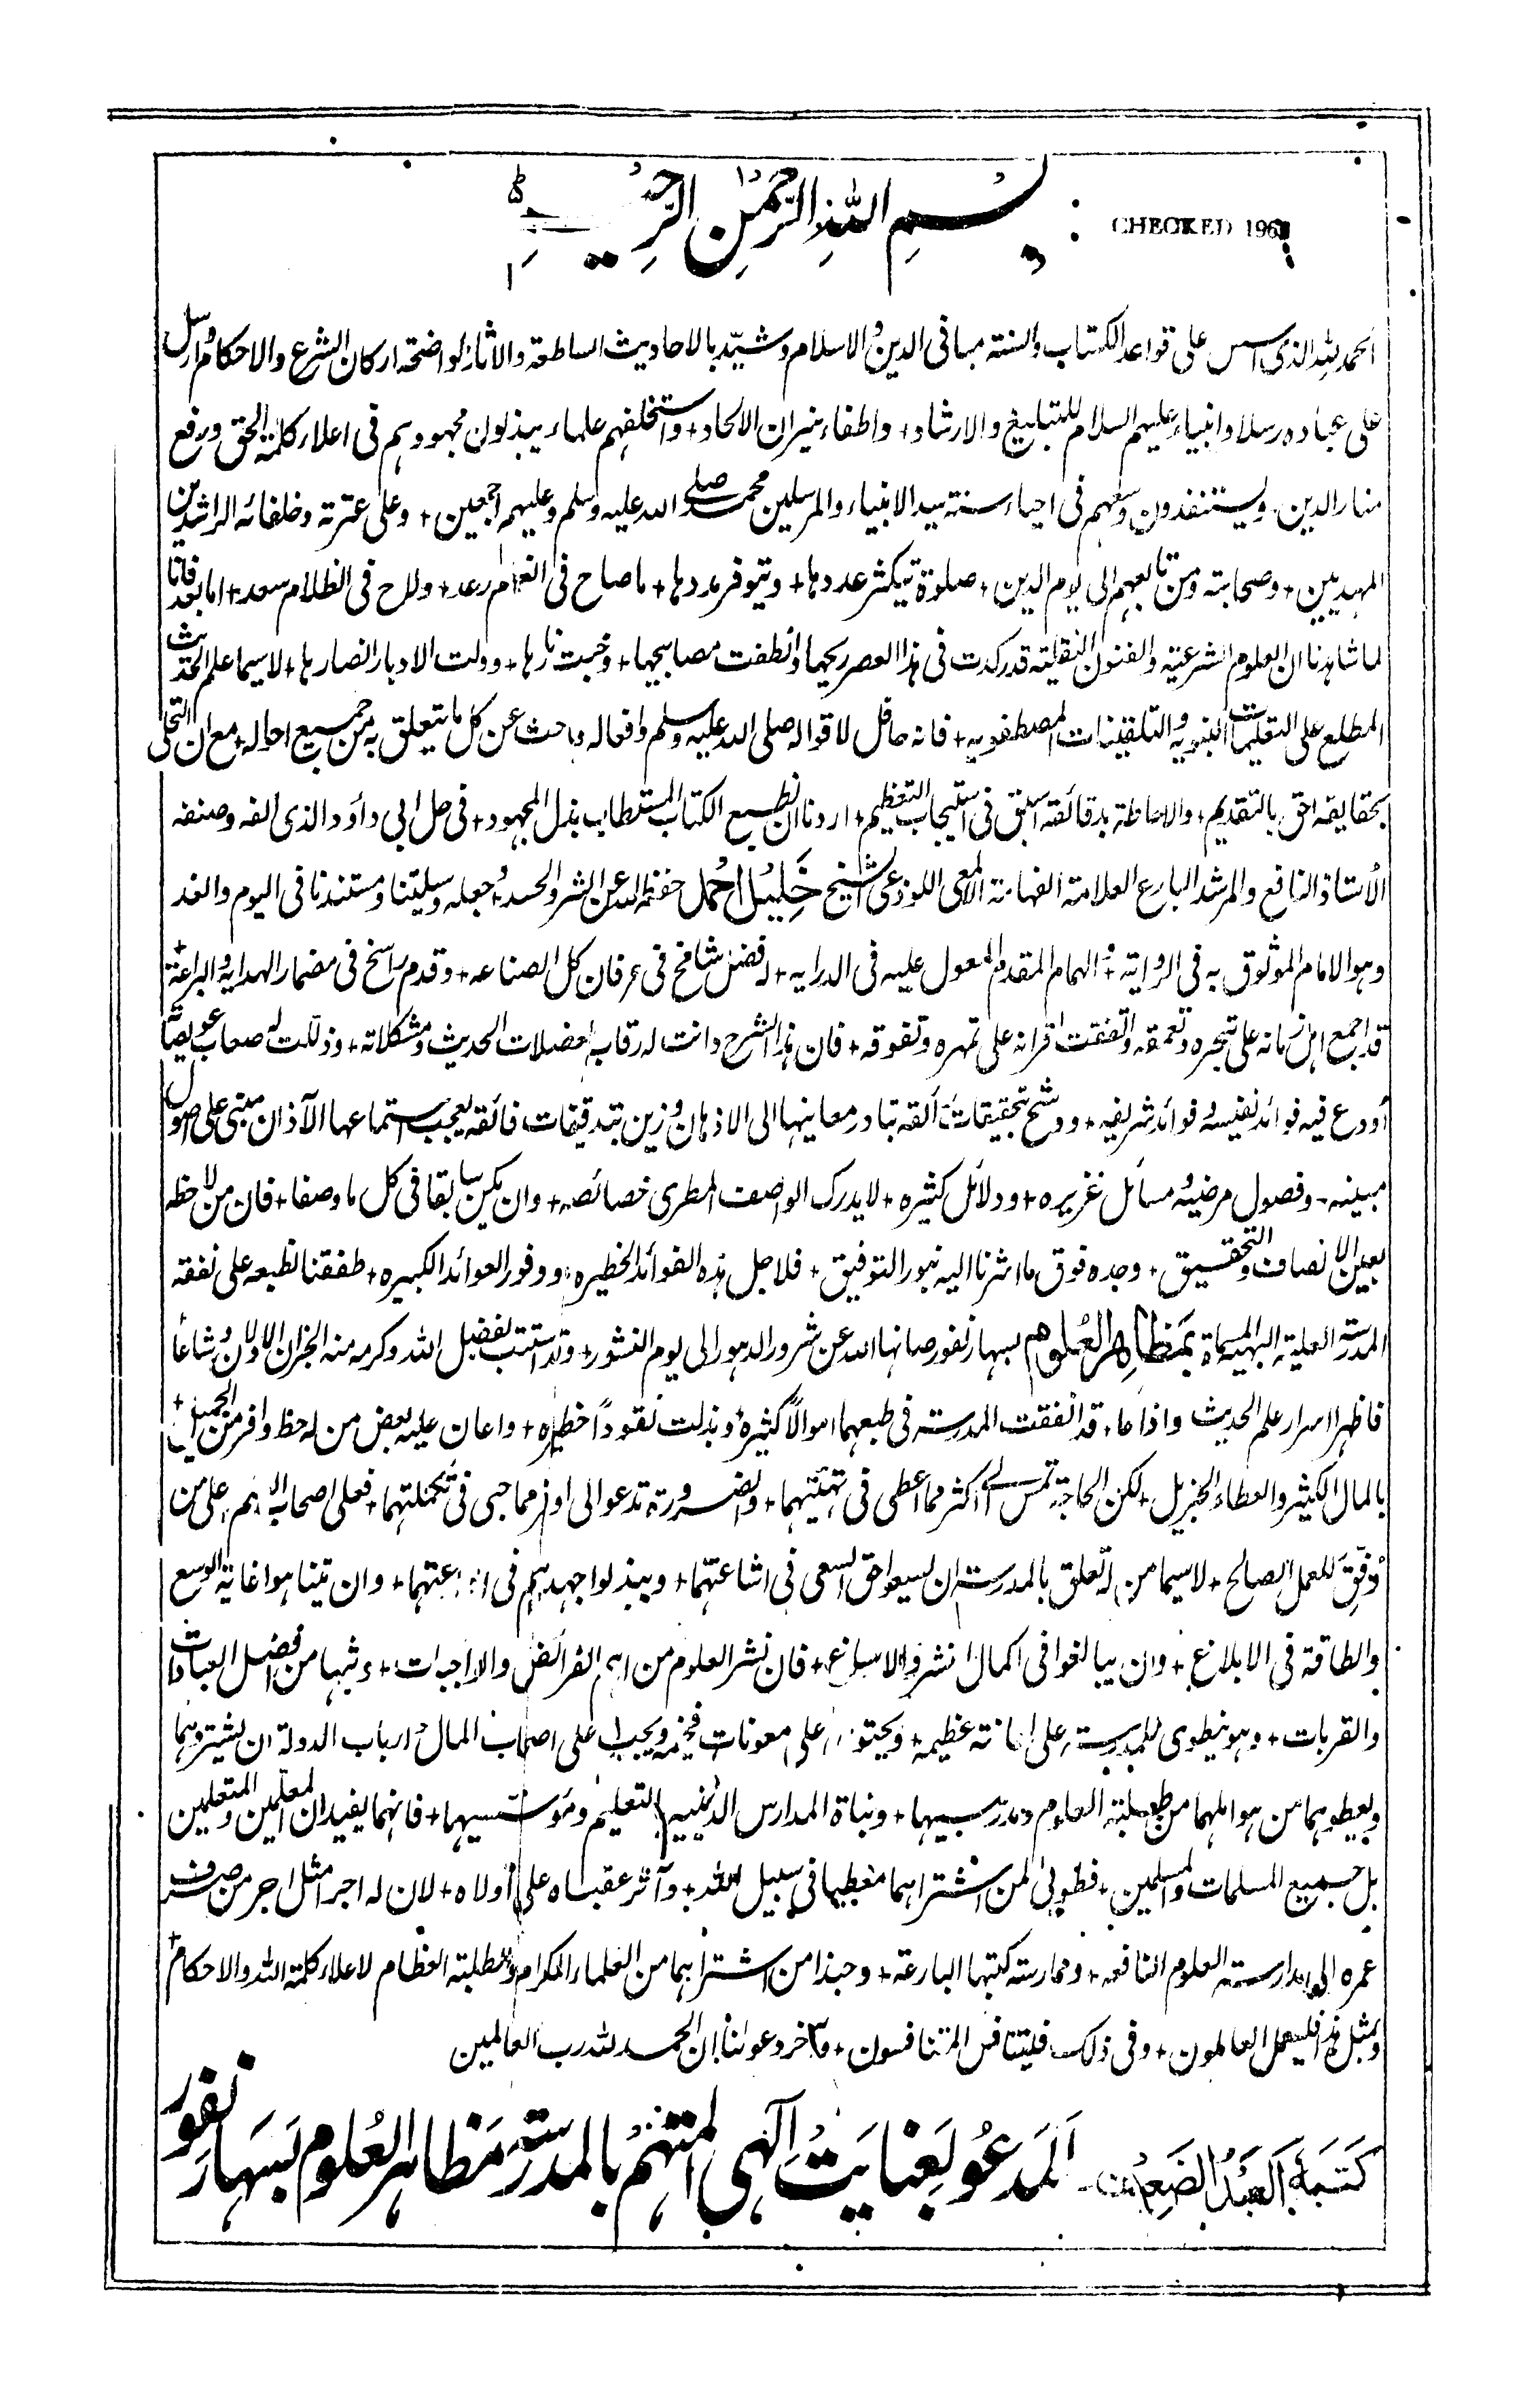 بسم الله الرحمن الرحيم
CHECKED 196
الحمد لله الذى اسس على قواعد الكتاب والسنته مبانى الدين والاسلام وشيّد بالاحاديث الساطعة والاثار الواضحة اركان الشرع والاحكام وارسل
على عباده رسلا وانبياء عليهم السلام للتبليغ والارشاد + واطفاء نيران الالحاد + واستخلفهم علماء يبذلون مجهودهم فى اعلاء كلمة الحق ورفع
منار الدين - ويستنفدون وسعهم فى احياء سنة سيد الانبياء والمرسلين محمد صلے الله عليه وسلم وعليهم اجمعين + وعلى عترته وخلفائه الراشدين
المهديين + وصحابته ومن تابعهم الى يوم الدين + صلوة تيكثر عددها + ويتوفر مددها + ما صاح فى الغمام رعد + ولاح فى الظلام سعد + اما بعد فانا
لما شاهدنا ان العلوم الشرعية والفنون النقلية قد ركدت فى هذا العصر ريحها وانطفت مصابيحها + وخمدت نارها + وولت الادبار انصارها + لاسيما علم الحديث
المطلع على التعليمات النبويه والتلقينات المصطفويه + فانه حافل لاقواله صلى الله عليه وسلم وافعاله وباحث عن كل ما يتعلق به من جميع احواله + مع ان التحلى
بحقايقه احق بالتقديم + والاحاطة بدقائقه اسبق فى استيجاب التعظيم + اردنا ان نطبع الكتاب المستطاب بذل المجهود + فى حل ابى داؤد الذى الفه وصنفه
الأستاذ النافع والمرشد البارع العلامة الفهامة الالمعى اللوذعى الشيخ خليل احمد حفظه الله عن الشر والحسد وجعله وسيلتنا ومستندنا فى اليوم والغد
وهو الامام الموثوق به فى الرواية + والهمام المقدم المعول عليه فى الدرايه + له فضل شامخ فى عرفان كل الصناعه + وقدم راسخ فى مضمار الهداية والبراعة +
قد اجمع اهل زمانه على تبحره وتعمقه واتفقت اقرانه على تمهره وتفوقه + فان هذا الشرح دانت له رقاب معضلات الحديث ومشكلاته + وذللت له صعاب عويصاته
أودع فيه فوائد نفيسه وفوائد شريفه + ووشح بتحقيقات رائقه تبادر معاينها الى الاذهان وزين بتدقيقات فائقه يعجب استماعها الآذان مبنى على اصول
مبينه - وفصول مرضيه مسائل غزيره + ودلائل كثيره + لا يدرك الواصف المطرى خصائصه + وان يكن سابقا فى كل ما وصفا + فان من لاحظه
بعين الانصاف والتحقيق + وجده فوق ما اشرنا اليه بنور التوفيق + فلاجل هذه الفوائد الخطيره + ووفور العوائد الكبيره + طفقنا نطبعه على نفقة
المدرسة العلية البهية المسماة بمظاهر العلوم بسهارنفور صانها الله عن شرور الدهور الى يوم النشور + وقد استتب بفضل الله وكرمه منه الجزان الاولان وشاعا
فاظهرا اسرار علم الحديث واذاعا + قد انفقت المدرسة فى طبعهما اموالًا كثيرة وبذلت نقودًا خطيره + واعان عليه بعض من له حظ وافر من الجميل +
بالمال الكثير والعطاء الجزيل + لكن الحاجة تمس الى اكثر مما اعطى فى تهيئتهما + والضرورة تدعو الى اوفر مما جبى فى تكملتهما + فعلى اصحاب الهمم وعلى من
وُفِّقَ للعمل الصالح + لاسيما من له تعلق بالمدرسة ان يسعوا حق السعى فى اشاعتهما + ويبذلوا جهدهم فى اذاعتهما + وان يتناهوا غاية الوسع
والطاقة فى الابلاغ + وان يبالغوا فى اكمال النشر والاسباغ + فان نشر العلوم من اهم الفرائض والواجبات + وبثها من افضل العبادات
والقربات + وهو ينطوى للمدرسة على اعانة عظيمه + ويحتوى على معونات فخيمه ويجب على اصحاب المال وارباب الدولة ان يشتروهما
ويعطوهما من هو اهلهما من طلبة العلوم ومدرسيها + وبناة المدارس الدينيه التعليم ومؤسسيها + فانهما يفيدان المعلمين والمتعلمين
بل جميع المسلمات والمسلمين + فطوبى لمن اشتراهما معطيها فى سبيل الله + وآثر عقباه على أولاه + لان له اجرا مثل اجر من صرف
عمره الى مدارسة العلوم النافعه + وممارسة كتبها البارعة + وحبذا من اشتراهما من العلماء الكرام والطلبة العظام لاعلاء كلمة الله والاحكام +
وبمثل هذا فليعمل العالمون + وفى ذلك فليتنافس المتنافسون + وآخر دعوانا ان الحمد لله رب العالمين
كتبه العبد الضعيف - المدعو بعنايت الهى المهتمم بالمدرسة مظاهر العلوم بسهارنفور